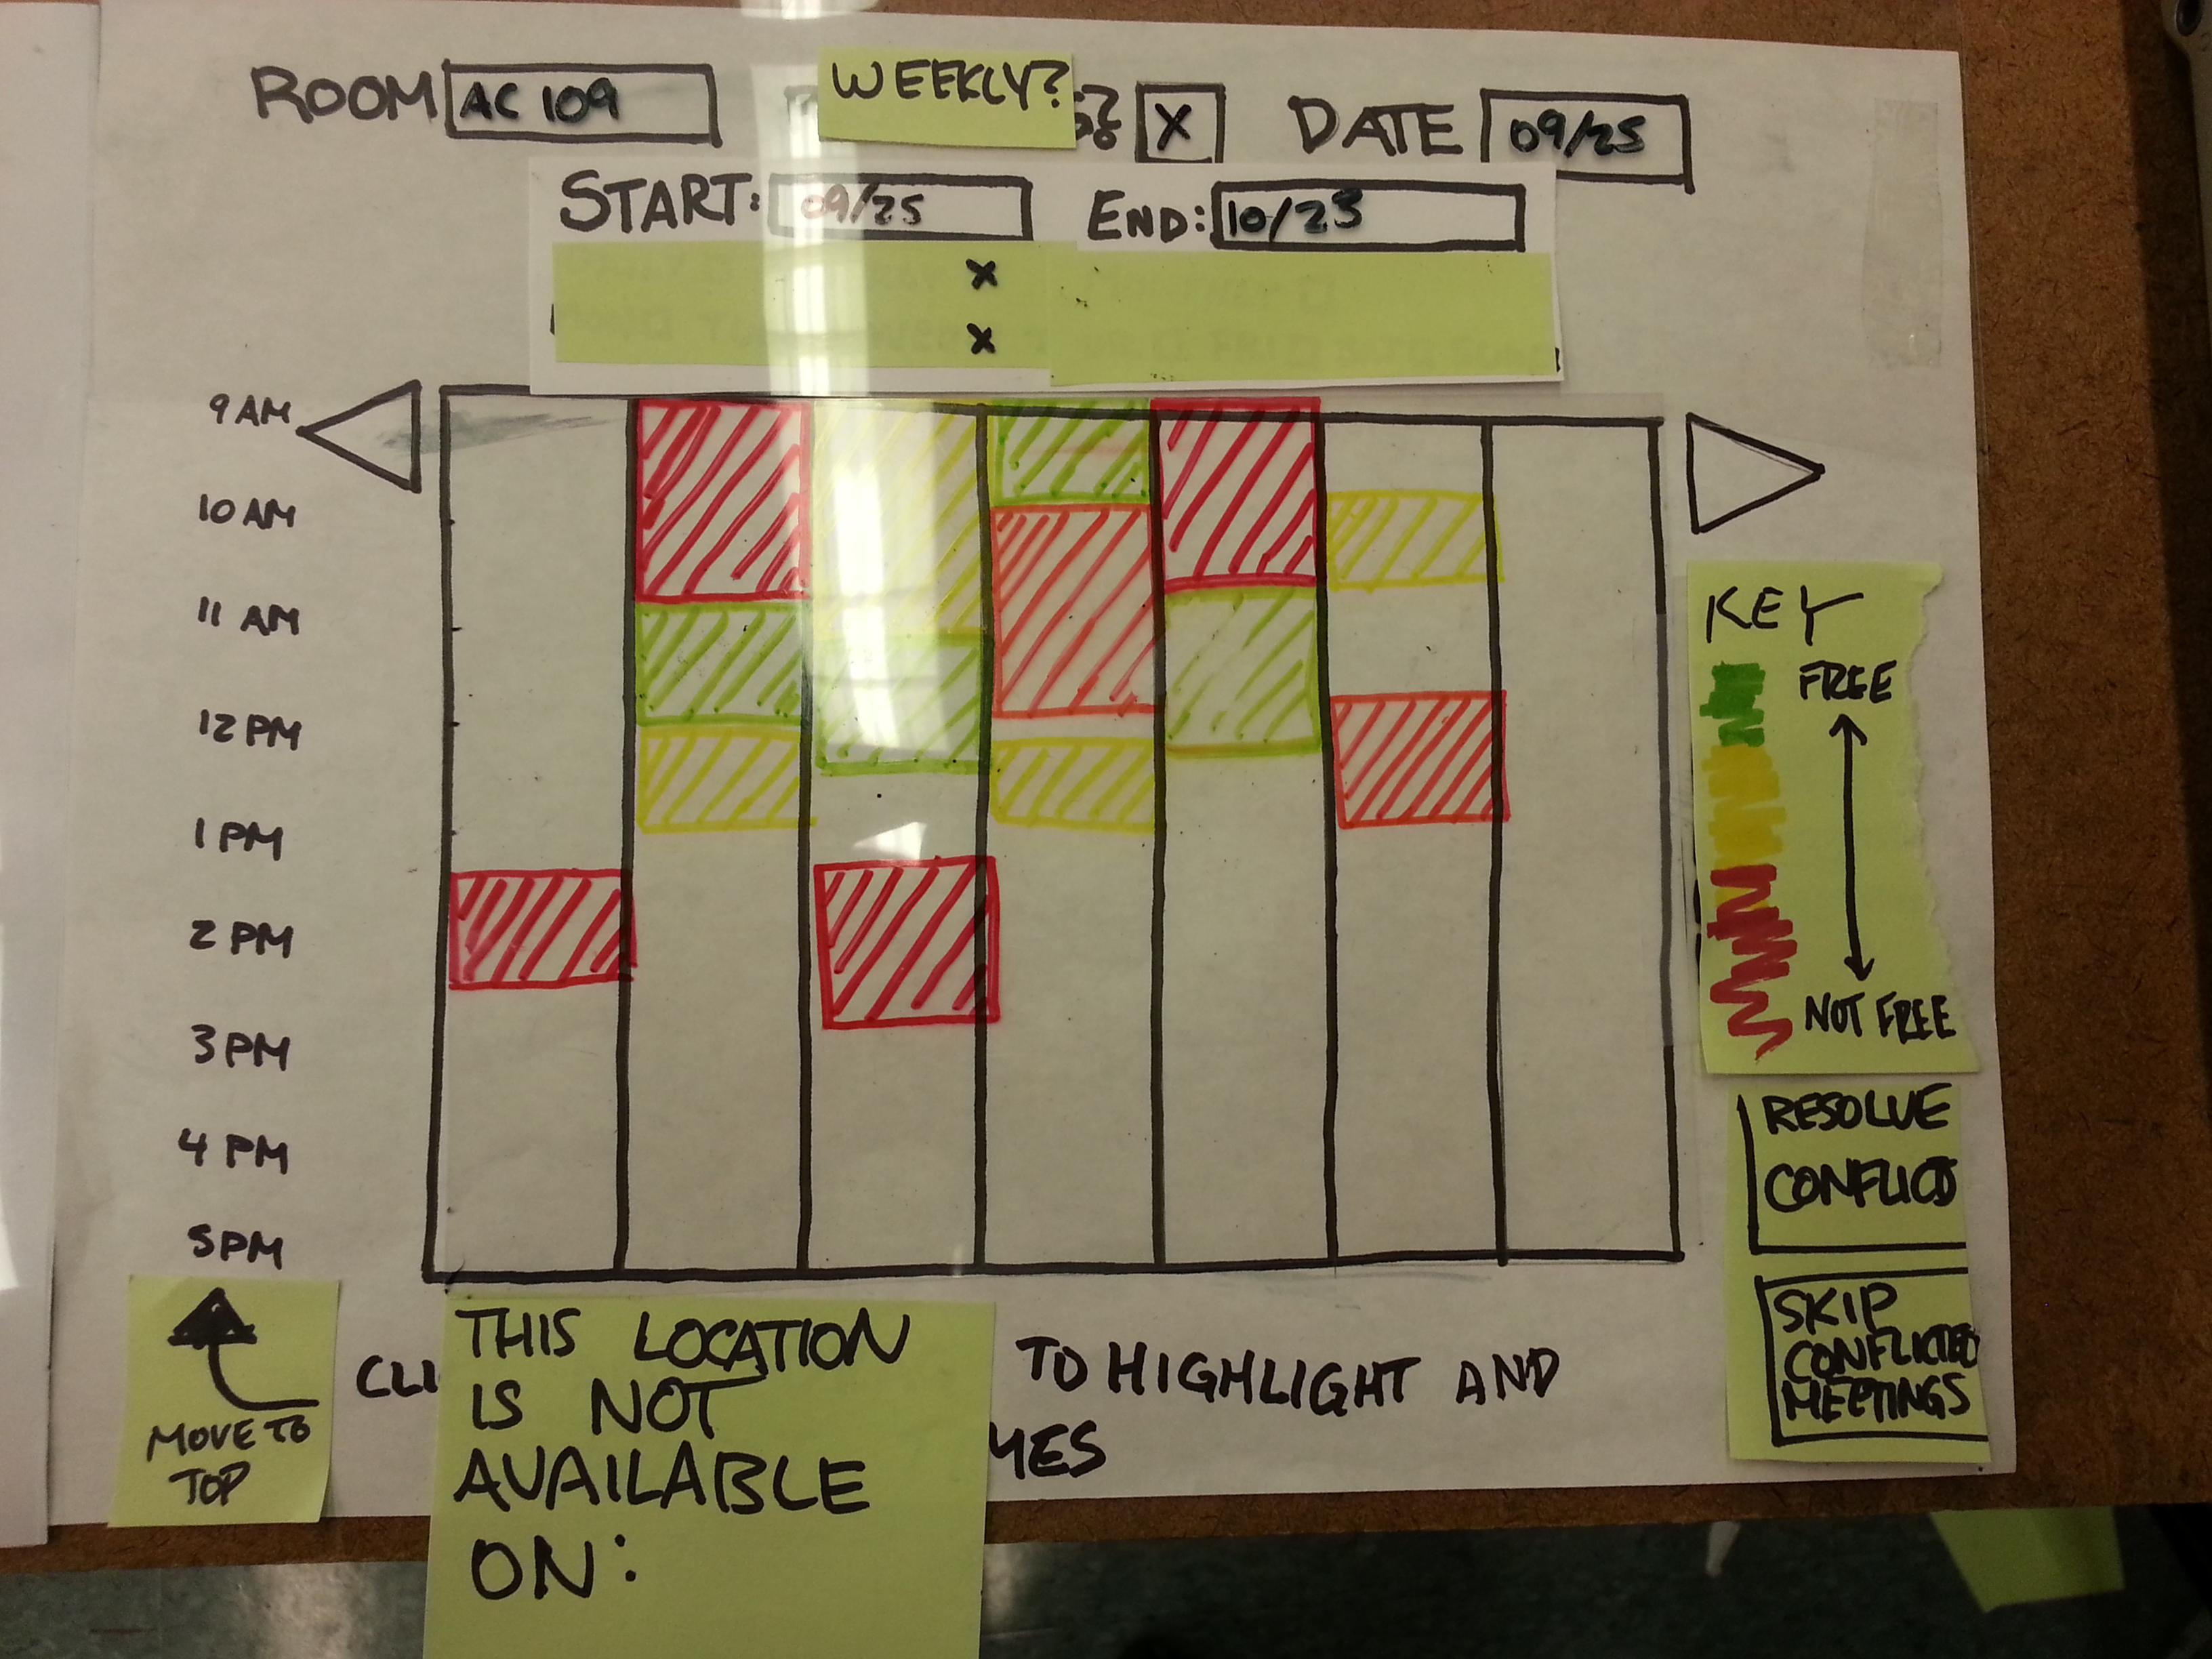 ROOM AC 109 WEEKLY? X DATE 09/25
START: 09/25 END: 10/23
X
X
9 AM
10 AM
11 AM
12 PM
1 PM
2 PM
3 PM
4 PM
5 PM
KEY
FREE
NOT FREE
RESOLVE
CONFLICTS
SKIP
CONFLICTED
MEETINGS
MOVE TO
TOP
THIS LOCATION
IS NOT
AVAILABLE
ON:
TO HIGHLIGHT AND